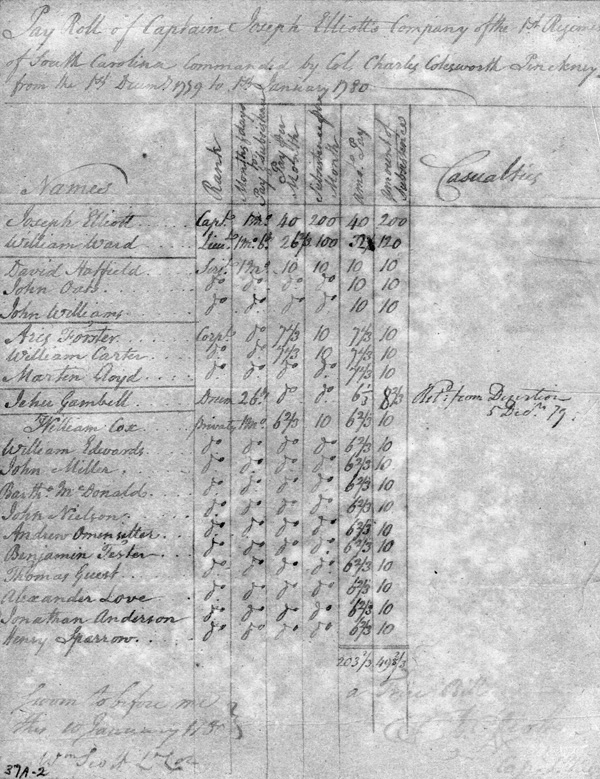 Pay Roll of Captain Joseph Elliott's Company of the 1st Regiment
of South Carolina Commanded by Col. Charles Cotesworth Pinckney
from the 1st Decemr. 1779 to 1st January 1780
Names Rank Months & days for Pay & Subsistance Pay Per Month Subsistence Per Month Amt. of Pay Amount of Subsistance Casualties
Joseph Elliott Capt. 1 mo. 40 200 40 200
William Ward Lieut. 1 mo. 6d. 26 2/3 100 32 120
David Hatfield Serjt. 1 mo. 10 10 10 10
John Oats do do do do 10 10
John Williams do do do do 10 10
Aris Forster Corpl. do 7 1/3 10 7 1/3 10
William Carter do do 7 1/3 10 7 1/3 10
Martin Loyd do do do do 7 1/3 10
Jehu Gambell Drum 26 d. do do 6 1/3 8 2/3 Retd. from Desertion
5 Decr. 79.
William Cox private 1 mo. 6 2/3 10 6 2/3 10
William Edwards do do do do 6 2/3 10
John Miller do do do do 6 2/3 10
Bartho. McDonald do do do do 6 2/3 10
John Nielson do do do do 6 2/3 10
Andrew Omensetter do do do do 6 2/3 10
Benjamin Tester do do do do 6 2/3 10
Thomas Guest do do do do 6 2/3 10
Alexander Love do do do do 6 2/3 10
Jonathan Anderson do do do do 6 2/3 10
Henry Sparrow do do do do 6 2/3 10
203 1/3 49 2/3
Sworn to before me a True Bill
this 10 January 178
Wm Scott Lt Col
37A-2